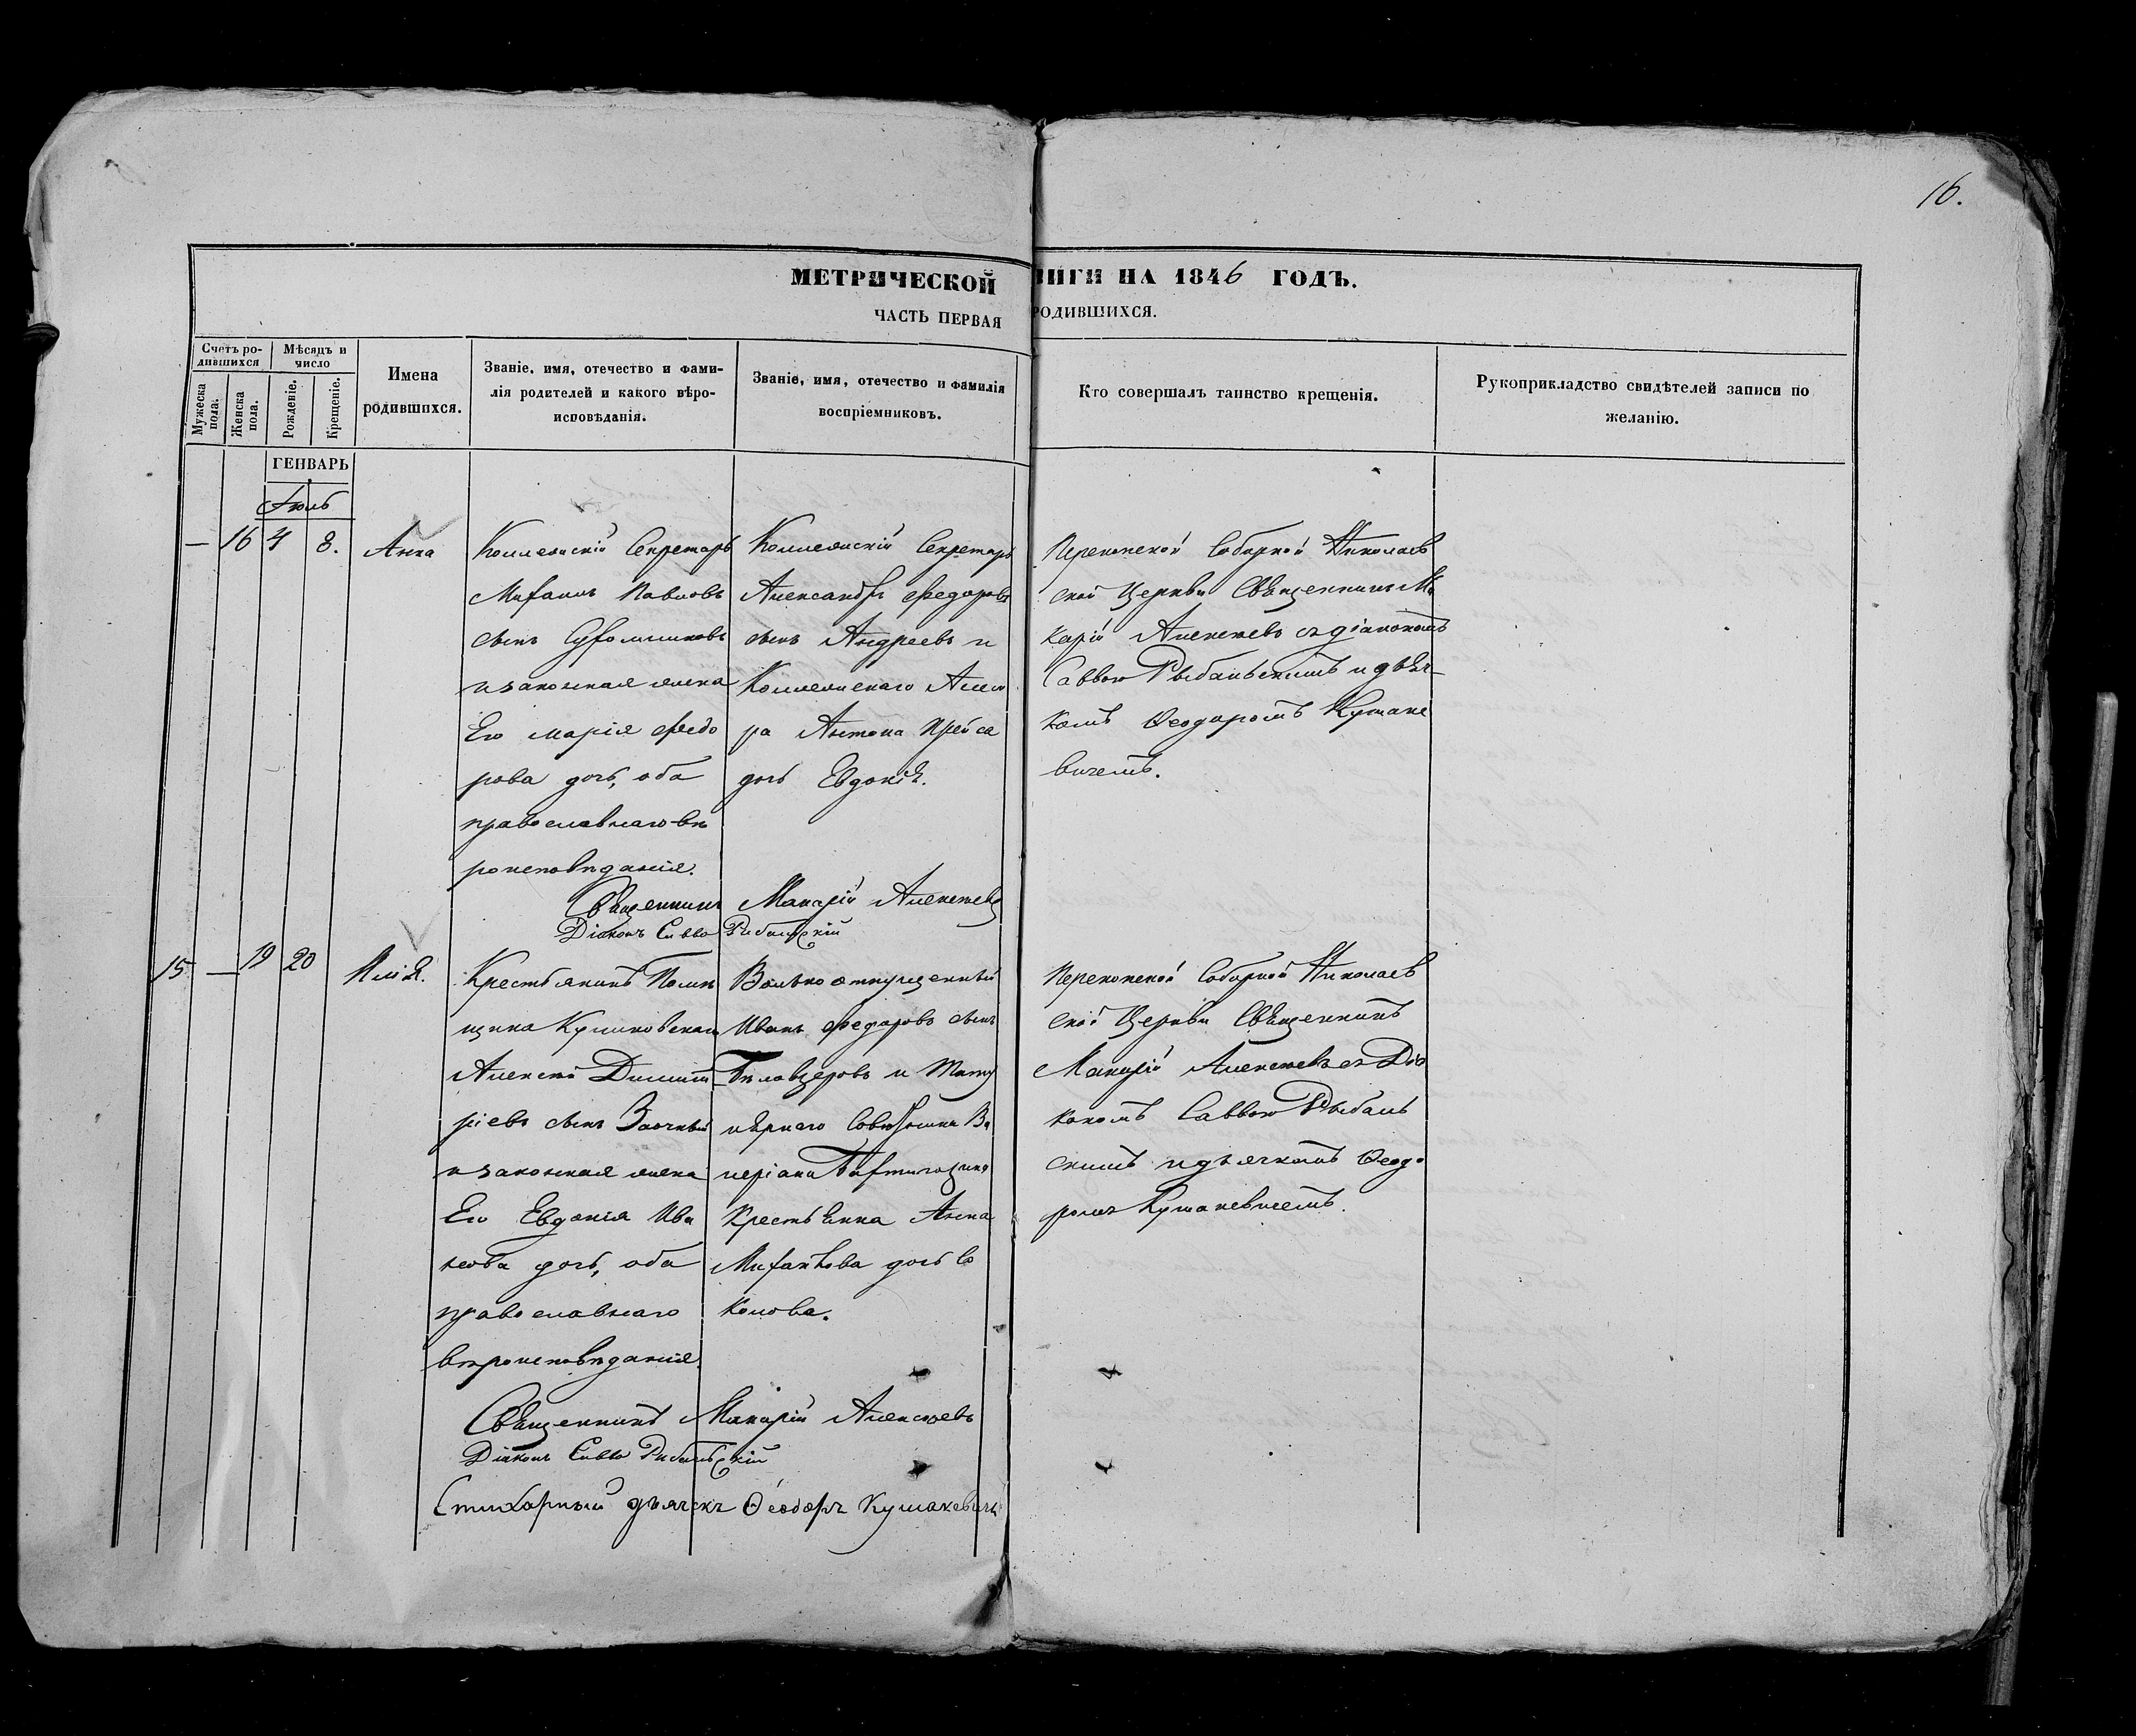 16.
МЕТРИЧЕСКОЙ НИГИ НА 1846 ГОДЪ.
ЧАСТЬ ПЕРВАЯ РОДИВШИХСЯ.
Счетъ ро-
дившихся
Мѣсяцъ и
число
Мужеска
пола.
Женска
пола.
Рожденіе.
Крещеніе.
Имена
родившихся.
Званіе, имя, отечество и фами-
лія родителей и какого вѣро-
исповѣданія.
Званіе, имя, отечество и фамилія
воспріемниковъ.
Кто совершалъ таинство крещенія.
Рукоприкладство свидѣтелей записи по
желанію.
ГЕНВАРЬ
Іюль
— 16 4 8. Анна
Коллежскій Секретарь
Михаилъ Павловъ
сынъ
и законная жена
Его Марія Ѳедо
рова дочь, оба
православнаго вѣ
роисповѣданія.
Коллежскій Секретарь
Александръ Ѳедоровъ
сынъ Андреевъ и
Коллежскаго Асессо
ра Антона Прейса
дочь Евдокія.
Перекопской Соборной Николаев
ской Церкви Священникъ Ма
карій Алексѣевъ съ діакономъ
Саввою Рыбальскимъ и дьяч-
комъ Ѳеодоромъ Кушаке
вичемъ.
Священникъ Макарій Алексѣевъ
Діаконъ Савва Рибальскій
15 — 19 20 Илія.
Крестьянинъ Помѣ
щика Куликовскаго
Алексѣй Димит
ріевъ сынъ Заочный
и законная жена
Его Евдокія Ива
нова дочь, оба
православнаго
вѣроисповѣданія.
Вольно отпущенный
Иванъ Ѳедоровъ сынъ
Бѣлозеровъ и Титу
лярнаго Совѣтника Ва
леріана
Крестьянка Анна
Михайлова дочь Со
колова.
Перекопской Соборной Николаев
ской Церкви Священникъ
Макарій Алексѣевъ съ Діа
кономъ Саввою Рыбаль
скимъ и дьячкомъ Ѳеодо
ромъ Кушакевичемъ.
Священникъ Макарій Алексѣевъ
Діаконъ Савва Рибальскій
Стихарный дьячекъ Ѳеодоръ Кушакевичъ